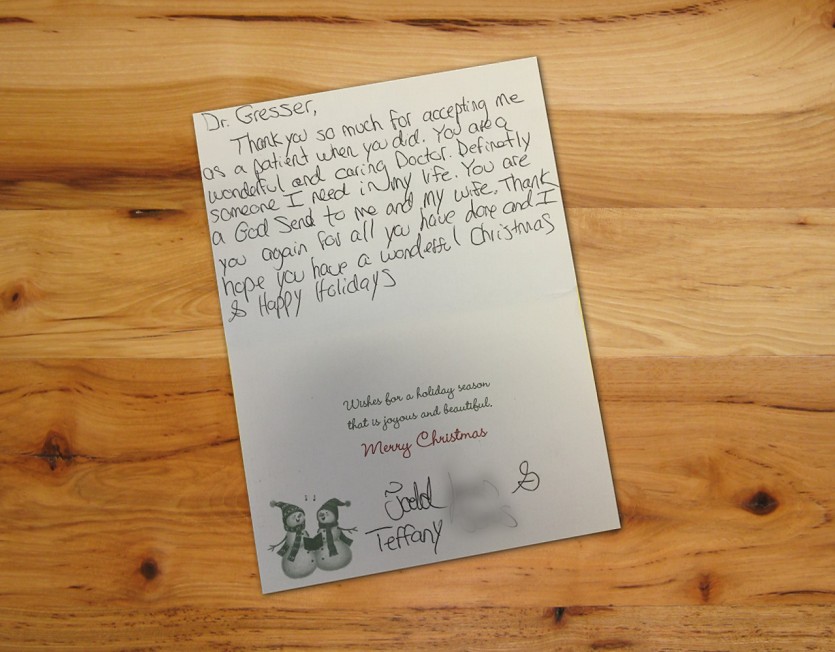 Dr. Gresser,
Thank you so much for accepting me
as a patient when you did. You are a
wonderful and caring Doctor. Definatly
someone I need in my life. You are
a God Send to me and my wife. Thank
you again for all you have done and I
hope you have a wonderful Christmas
& Happy Holidays
Wishes for a holiday season
that is joyous and beautiful.
Merry Christmas
Todd &
Teffany